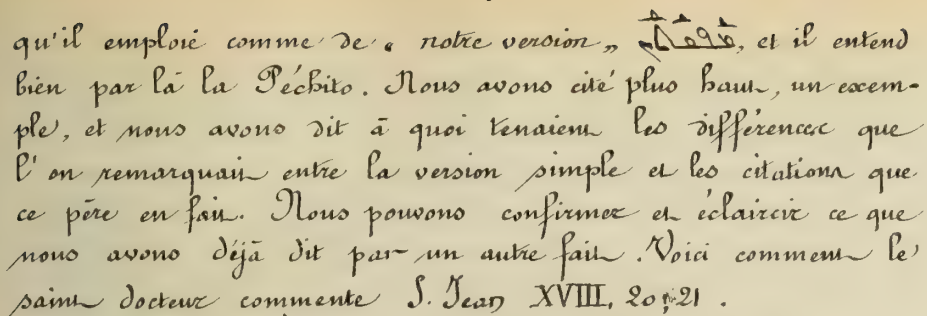 qu'il emploie comme de « notre version », et il entend
bien par là la Péchito. Nous avons cité plus haut, un exem-
ple, et nous avons dit à quoi tenaient les différences que
l'on remarquait entre la version simple et les citations que
ce père en fait. Nous pouvons confirmer et éclaircir ce que
nous avons déjà dit par un autre fait. Voici comment le
saint docteur commente S. Jean XVIII, 20, 21.